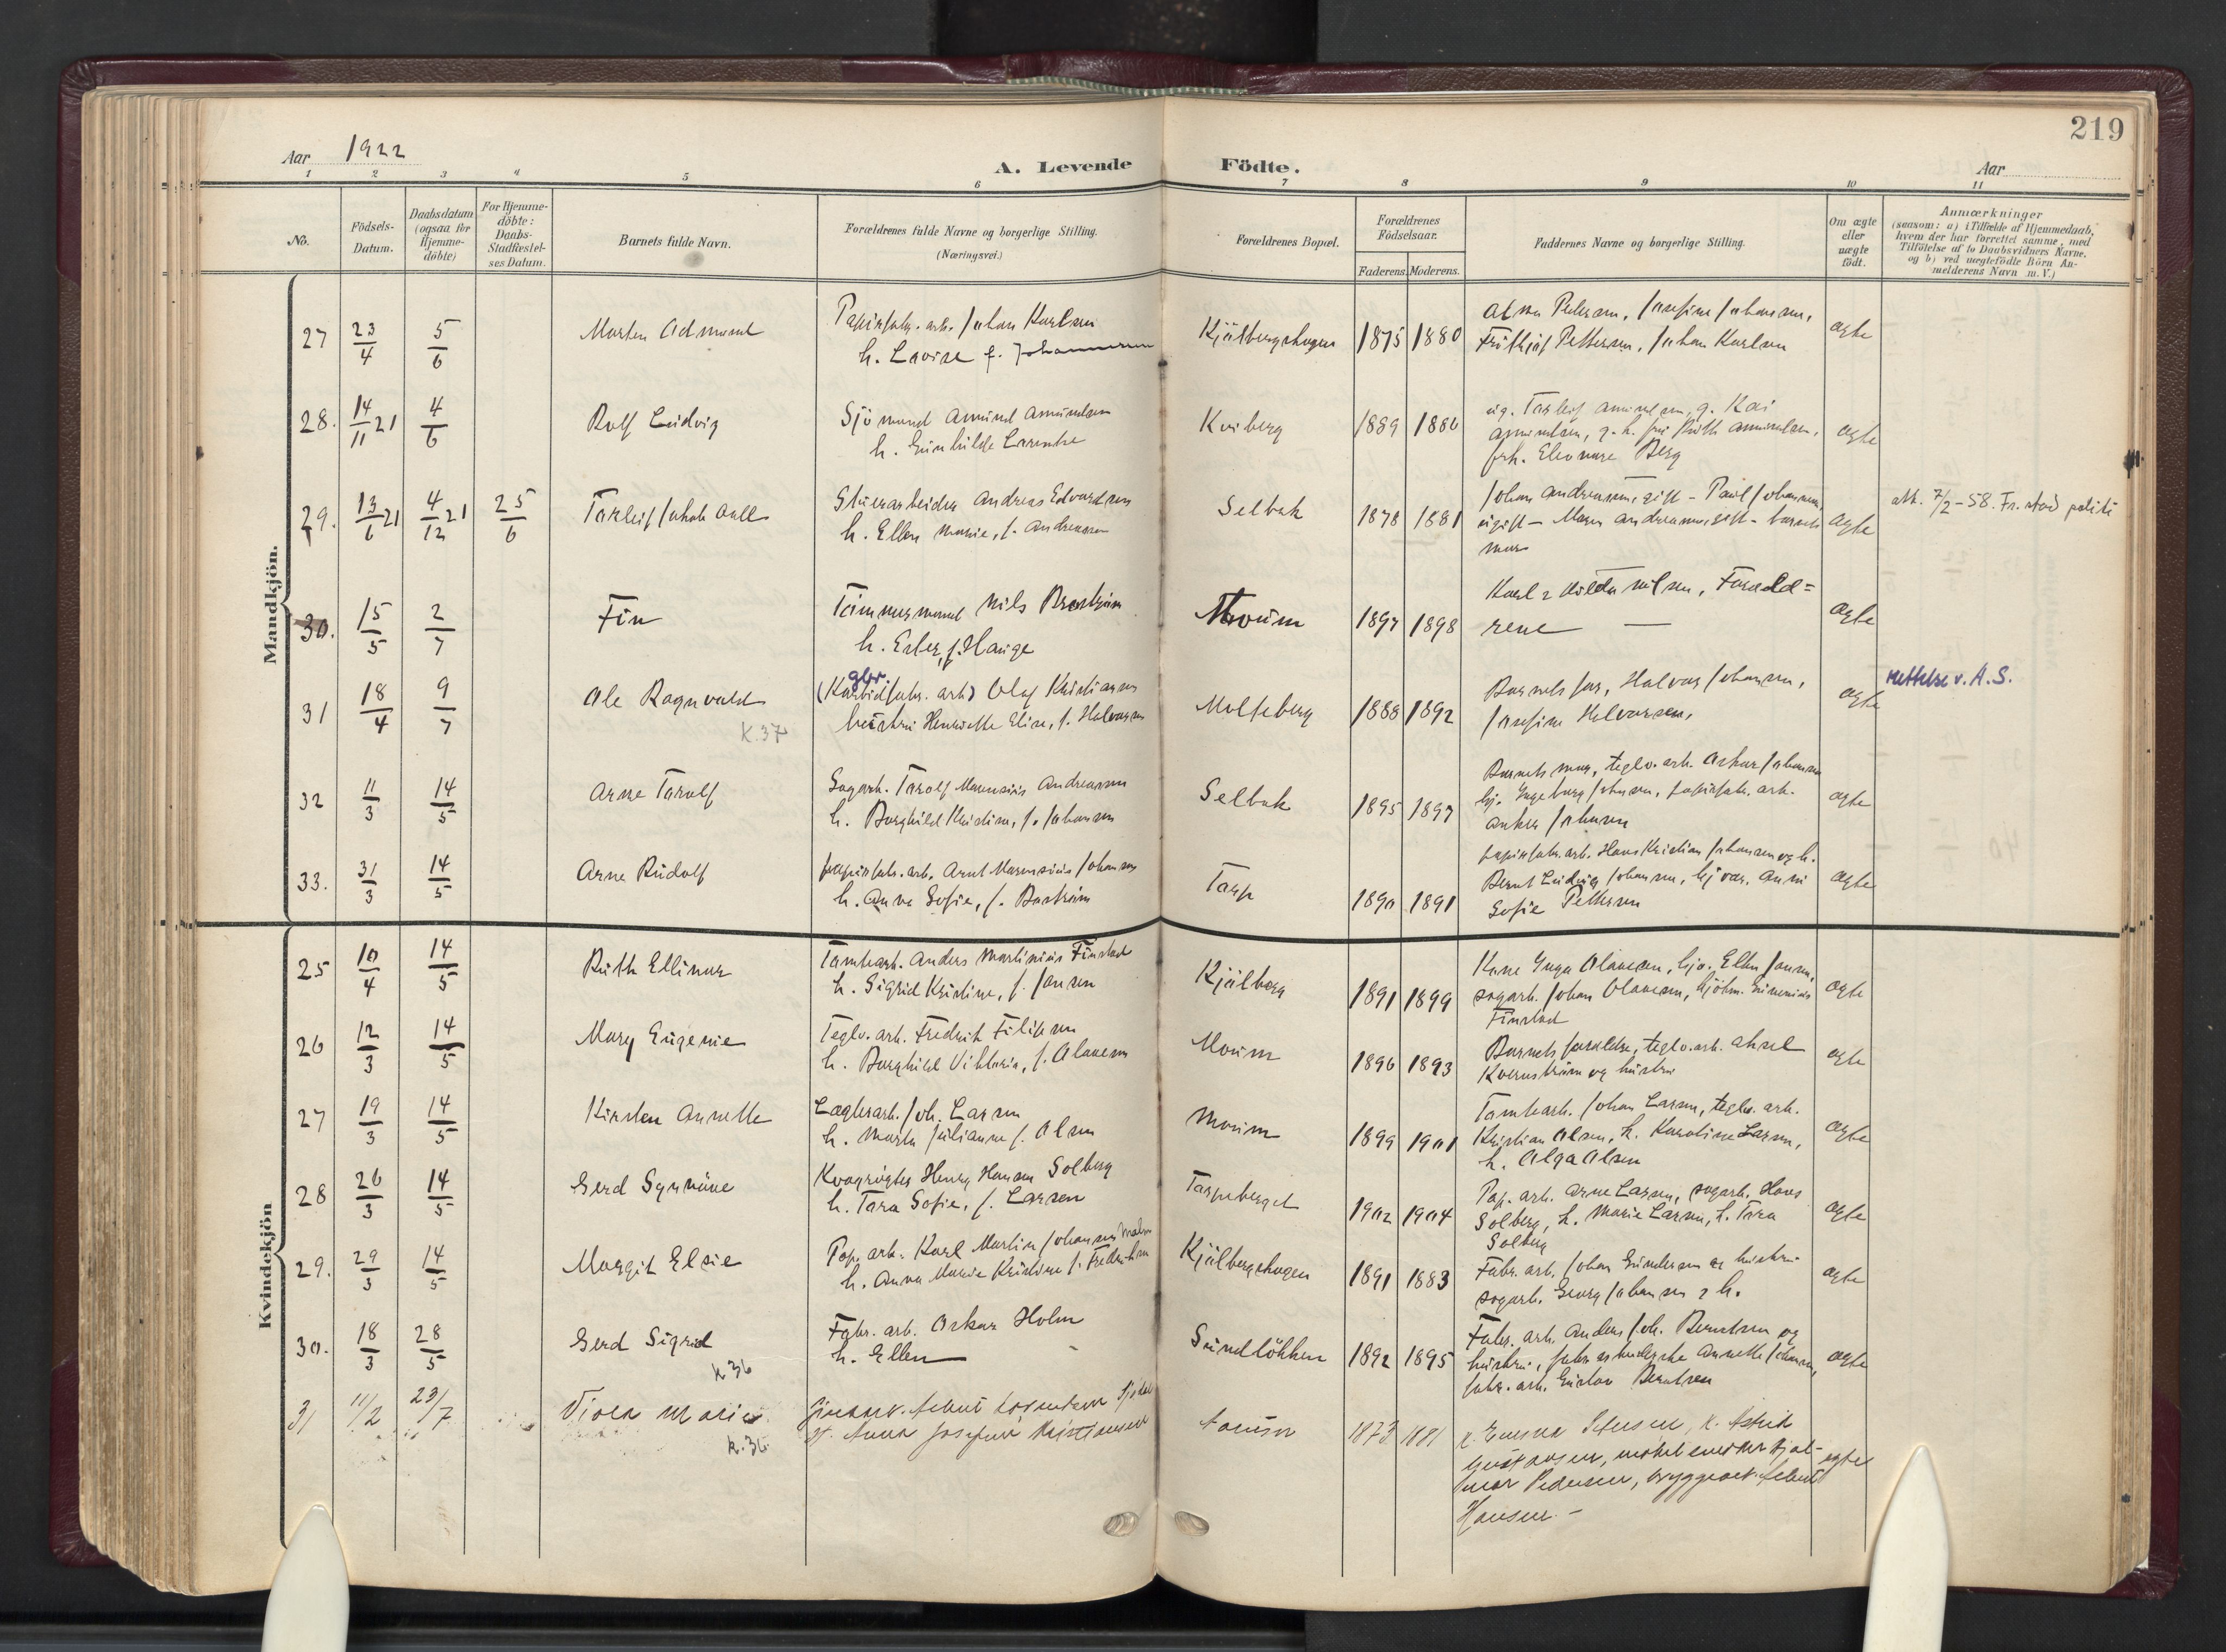 219
Aar 1922
A. Levende Födte.
Aar
1 2 3 4 5 6 7 8 9 10 11
No.
Födsels-Datum.
Daabsdatum (ogsaa for Hjemmedöbte)
For Hjemmedöbte: Daabs-Stadfæstelses Datum.
Barnets fulde Navn.
Forældrenes fulde Navne og borgerlige Stilling. (Næringsvei.)
Forældrenes Bopæl.
Forældrenes Födselsaar.
Faderens. Moderens.
Faddernes Navne og borgerlige Stilling.
Om ægte eller uægte födt.
Anmærkninger
(saasom: a) i Tilfælde af Hjemmedaab,
hvem der har forrettet samme, med
Tilföielse af to Daabsvidners Navne.
og b) ved uægtefödte Börn An-
melderens Navn m. V.)
Mandkjön.
27 23/4 5/6 Morten Admund
Papirfabr. arb. Johan Karlsen
h. Lovise f. Johannessen
Kjölbergskogen 1875 1880
Petersen, Josefine Johansen,
Frithjof Pettersen, Johan Karlsen
ægte
28. 14/11 21 4/6 Rolf Ludvig
Sjömand Amund Amundsen
h. Gunhilde Laurentse
Kviberg 1889 1886
ug. Torleif Amundsen, g. Kai
Amundsen, g. h. fru Ruth Amundsen,
frk. Eleonore Berg
ægte
29. 13/6 21 4/12 21 25/6 Torleif Jakob Aall
Stuerarbeider Andreas Edvardsen
h. Ellen Marie, f. Andreassen
Selbak 1878 1881
Johan Andreassen, gift - Paul Johannesen,
ugift - Maren Andreassen, gift - barnets
mor
ægte
att. 7/2-58. Fr.stad politi
30. 15/5 2/7 Fin
Tömmermand Nils Broström
h. Ester, f. Hauge
Moum 1897 1898
Karl & Hilda Nilsen, Foræld=
rene —
ægte
31 18/4 9/7 Ole Ragnvald
k. 37
gbr.
(Karbidfabr. arb) Olaf Kristiansen
hustru Henriette Elise, f. Halvorsen
Molteberg 1888 1892
Barnets far, Halvor Johansen,
Josefine Halvorsen,
ægte
rettelse v. A. S.
32 11/3 14/5 Arne Torolf
Sagarb. Torolf Mauritius Andreassen
h. Borghild Kristine, f. Johansen
Selbak 1895 1897
Barnets mor, teglv. arb. Oskar Johansen
hj. Ingeborg Johnsen, papirfabr. arb.
Anker Johnsen
ægte
33. 31/3 14/5 Arne Rudolf
papirfabr. arb. Arnt Marensius Johansen
h. Anna Sofie, f. Boström
Torp 1890 1891
papirfabr. arb. Hans Kristian Johansen og h.
Bernt Ludvig Johansen, hj.vær. Anni
Sofie Pettersen
ægte
Kvindekjön
25 10/4 14/5 Ruth Ellinor
Tomtearb. Anders Martinius Finstad
h. Sigrid Kristine, f. Jansen
Kjölberg 1891 1899
Kone Inga Olaussen, hjv. Ellen Jansen,
sagarb. Johan Olaussen,
Finstad
ægte
26 12/3 14/5 Mary Eugenie
Teglv. arb. Fredrik Filipsen
h. Borghild Viktoria, f. Olaussen
Moum 1896 1893
Barnets forældre, teglv. arb. Aksel
Kvernström og hustru
ægte
27 19/3 14/5 Kirsten Annette
Lagterarb. Joh. Larsen
h. Marta Julianne f. Olsen
Moum 1899 1901
Tomtearb. Johan Larsen, teglv. arb.
Kristian Olsen, h. Karoline Larsen,
h. Olga Olsen
ægte
28 26/3 14/5 Gerd Synnöve
Kvægrögter Henry Hansen Solberg
h. Tora Sofie, f. Larsen
Torpeberget 1902 1904
Pap. arb. Arne Larsen, sagarb. Hans
Solberg, h. Marie Larsen, h. Tora
Solberg
ægte
29. 29/3 14/5 Margit Elsie
Pap. arb. Karl Martin Johansen Moen
h. Anna Marie Kristine f. Fredriksen
Kjölbergskogen 1891 1883
Fabr. arb. Johan Gundersen og hustru
sagarb. Georg Johansen & h.
ægte
30. 18/3 28/5 Gerd Sigrid
k 36
Fabr. arb. Oskar Holm
h. Ellen —
Sundlökken 1892 1895
Fabr. arb. Anders Joh. Berntsen og
hustru, fabr.arbeiderske Annette Johansen,
fabr. arb. Gustav Berntsen
ægte
31 11/2 23/7 Viola Marie
k. 36
h. Anna Josefine Kristiansen
1873 1881
k. Emma Petersen, k. Astrid
Gustavsen,
Pedersen, bryggearb.
Hansen. —
ægte